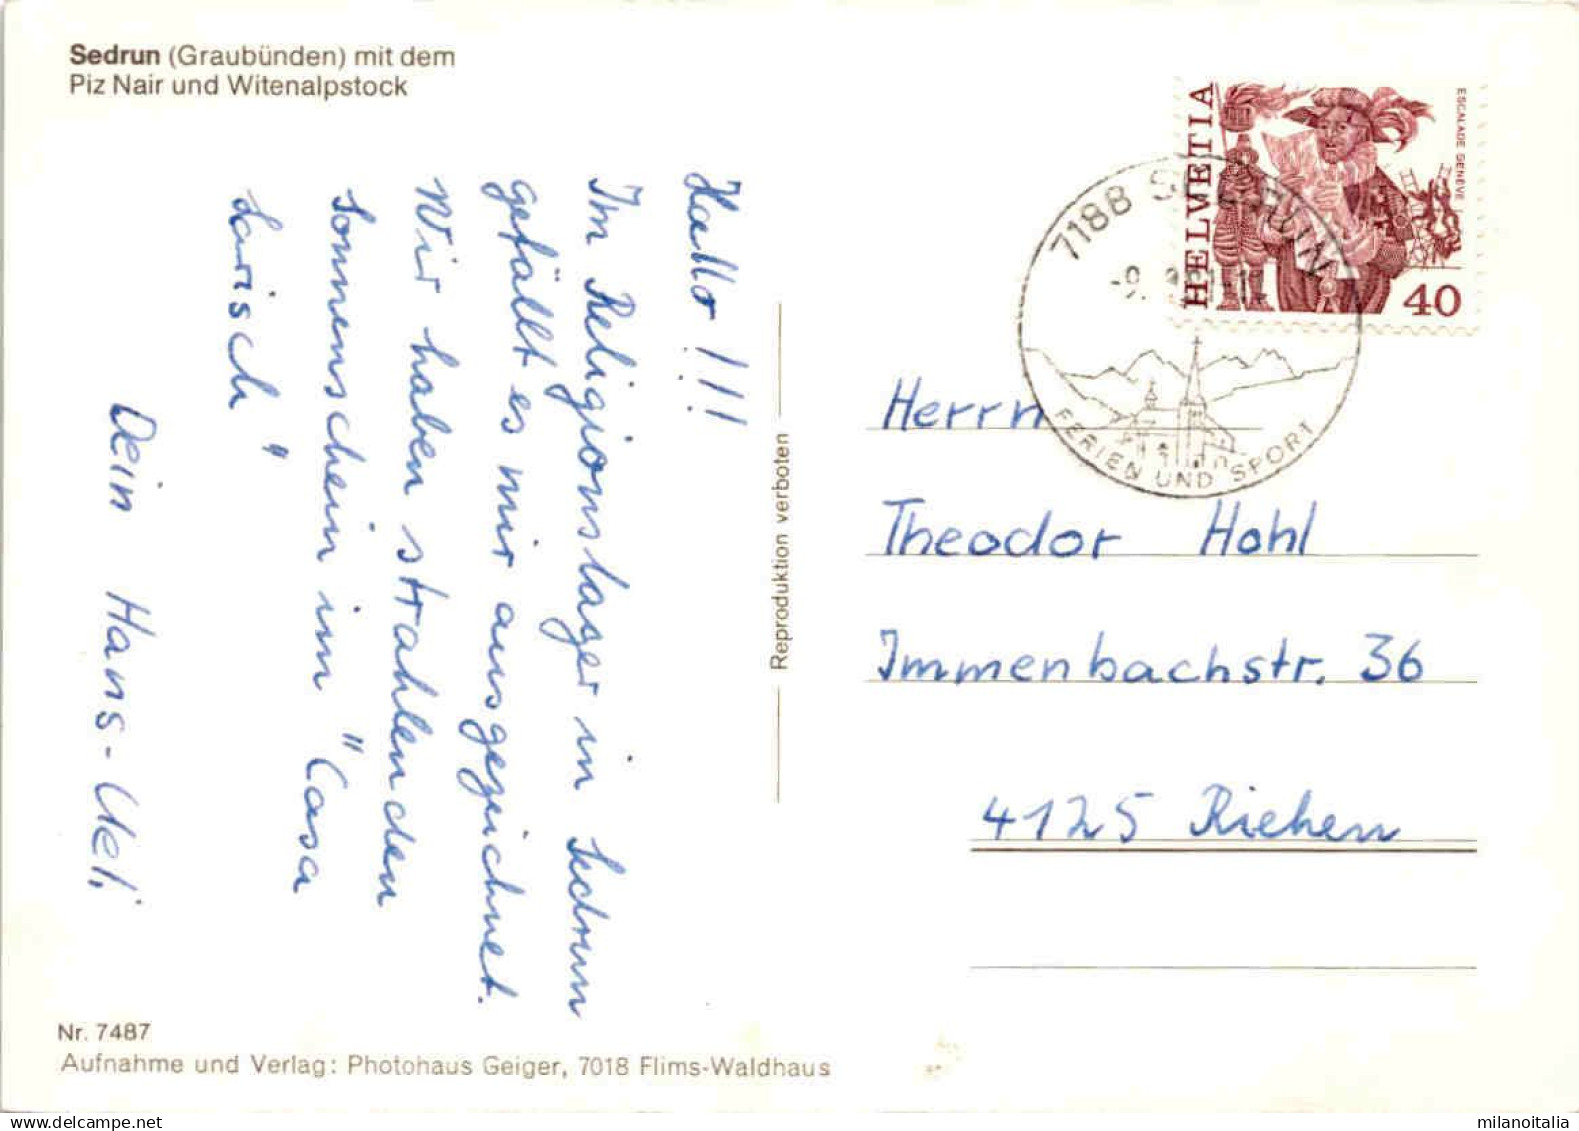 Sedrun (Graubünden) mit dem
Piz Nair und Witenalpstock
Hallo !!!
Im Religionslager in Sedrun
gefällt es mir ausgezeichnet.
Wir haben strahlenden
Sonnenschein im "Casa
Larisch"
Dein Hans-Ueli
Reproduktion verboten
HELVETIA
ESCALADE GENÈVE
40
7188 SEDRUN
FERIEN UND SPORT
Herrn
Theodor Hohl
Immenbachstr. 36
4125 Riehen
Nr. 7487
Aufnahme und Verlag: Photohaus Geiger, 7018 Flims-Waldhaus
milanoitalia